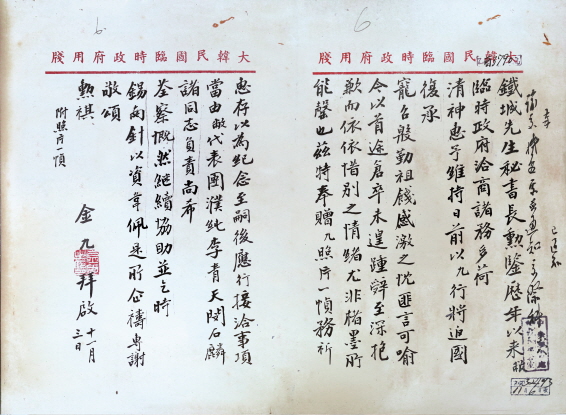 大韓民國臨時政府用牋
鐵城先生秘書長勳鑒歷年以來敝
臨時政府洽商諸務多荷
清神惠予維持日前以九行將返國
復承
寵召殷勤祖餞感激之忱匪言可喻
今以首途倉卒未遑踵辭至深抱
歉而依依惜別之情緒尤非楮墨所
能罄也茲特奉贈九照片一幀務祈
大韓民國臨時政府用牋
惠存以為紀念至嗣後應行接洽事項
當由敝代表團濮純李青天閔石麟
諸同志負責尚希
荃察慨然繼續協助並乞時
錫南針以資韋佩是所企禱專謝
敬頌
勳祺
附照片一幀
金九 拜啟 十一月三日